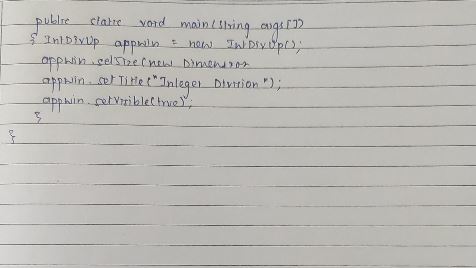 public static void main(String args[])
{ IntDivUp appwin = new IntDivUp();
appwin.setSize(new Dimension
appwin.setTitle("Integer Division");
appwin.setVisible(true);
}
}